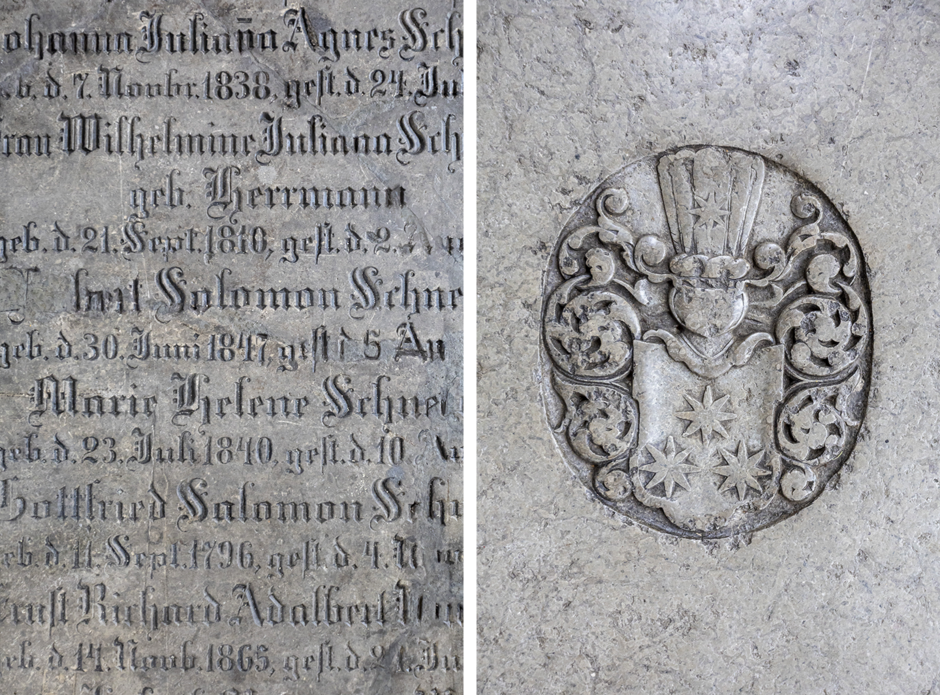 ohanna Julian̄a Agnes Sch
b. d. 7. Novbr. 1838, gest. d. 24. Ju
rau Wilhelmine Juliana Sch
geb. Herrmann
geb. d. 21. Sept. 1810, gest. d. 2.
bert Salomon Schne
geb. d. 30. Juni 1847, gest
Marie Helene Schnei
geb. d. 23. Juli 1840, gest. d. 10.
Gottfried Salomon Sch
eb. d. 11. Sept. 1796, gest. d. 4.
rnst Richard Adalbert
eb. d. 14. Novb. 1865, gest. d. Ju